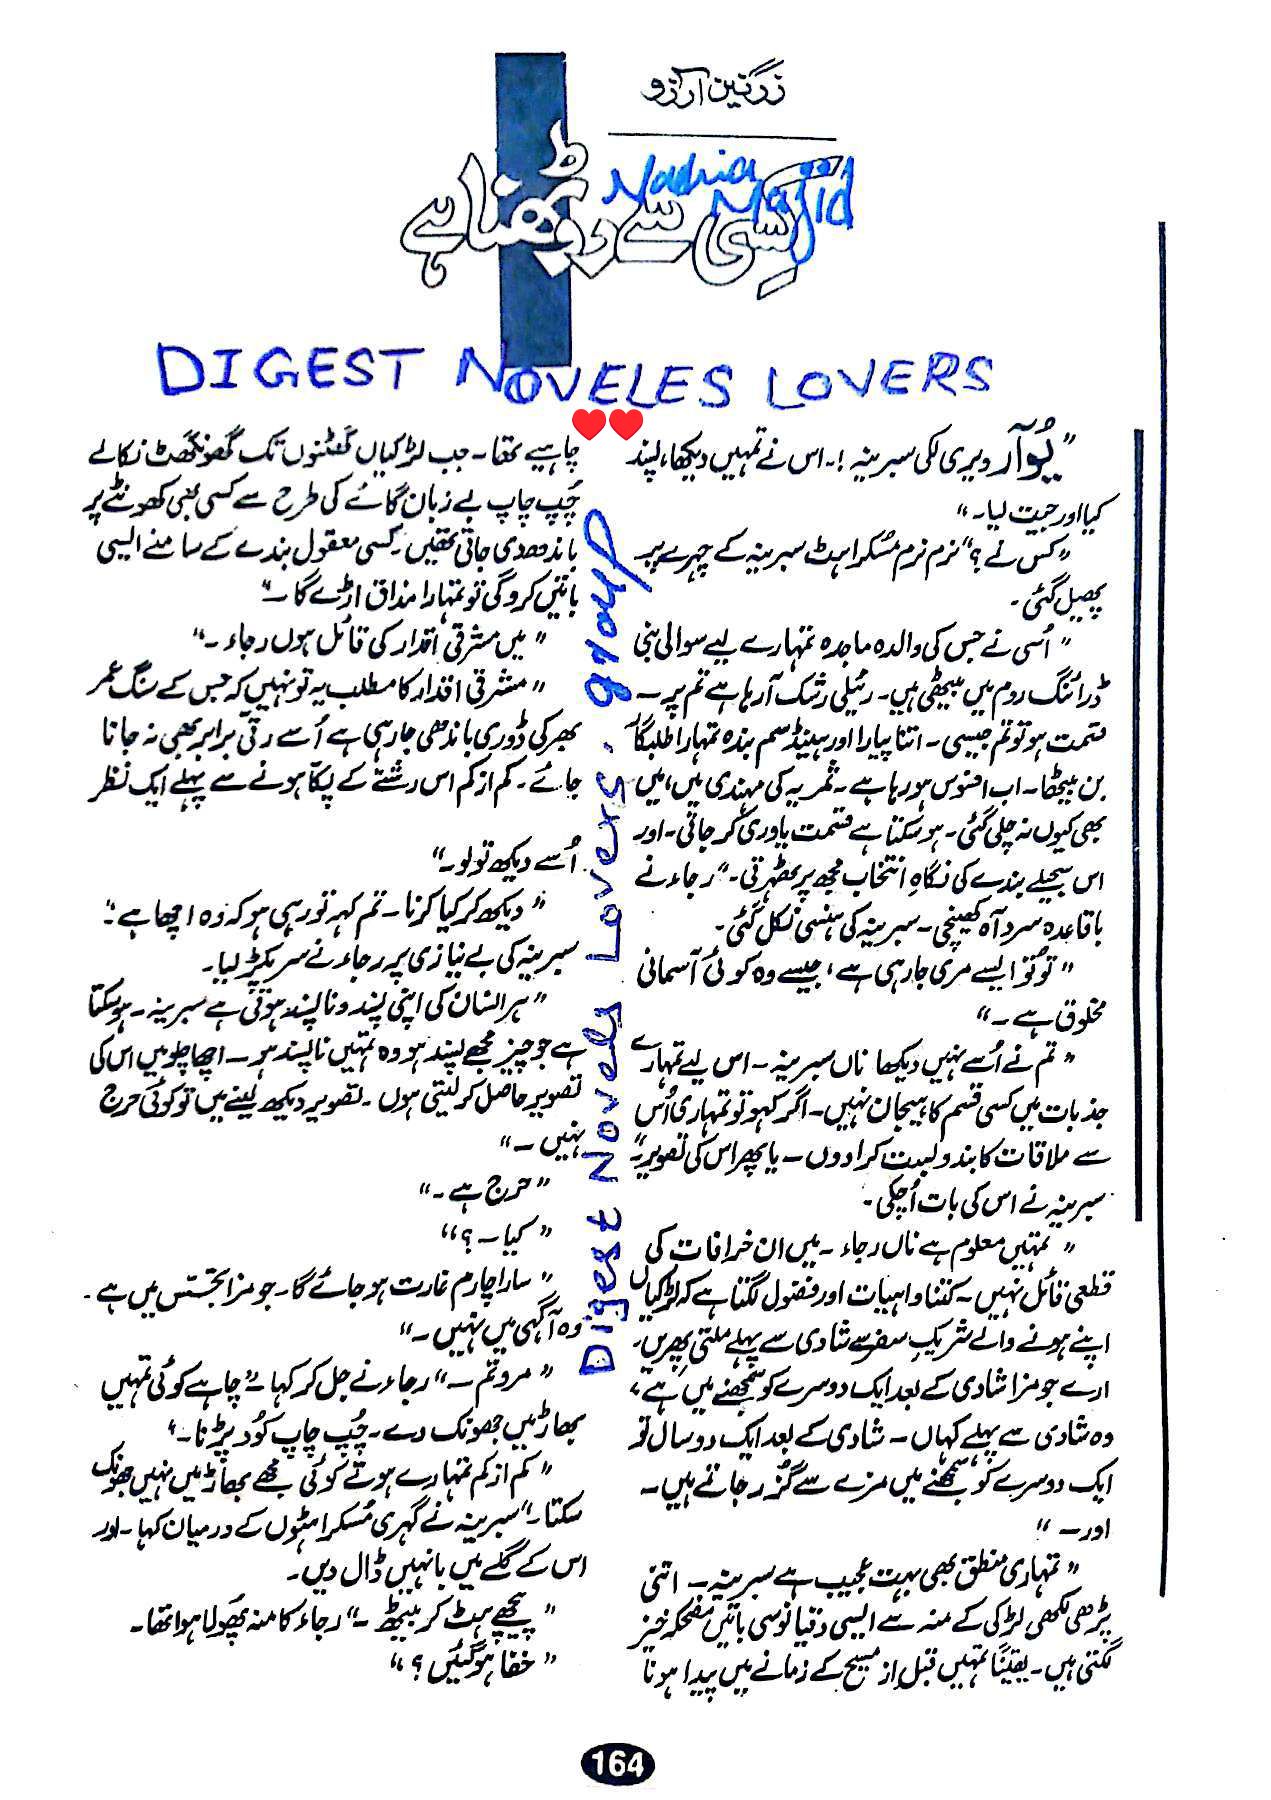 زرگنین آرزو
کسی سے روٹھنا ہے
Nadia
Majid
DIGEST NOVELES LOVERS
”یُو آر ویری لکی سبرینہ !۔ اس نے تمہیں دیکھا، پسند
کیا اور جیت لیا۔“
”کس نے ؟“ نرم نرم مسکراہٹ سبرینہ کے چہرے پر
پھیل گئی۔
”اُسی نے جس کی والدہ ماجدہ تمہارے لیے سوالی بنی
ڈرائنگ روم میں بیٹھی ہیں۔ رئیلی رشک آرہا ہے تم پر۔
قسمت ہو تو تم جیسی۔ اتنا پیارا اور ہینڈسم بندہ تمہارا طلبگار
بن بیٹھا۔ اب افسوس ہو رہا ہے۔ ثمریہ کی مہندی میں، میں
بھی کیوں نہ چلی گئی۔ ہو سکتا ہے قسمت یاوری کر جاتی۔ اور
اس سجیلے بندے کی نگاہِ انتخاب مجھ پر ٹھہرتی۔“ رجاء نے
باقاعدہ سرد آہ کھینچی۔ سبرینہ کی ہنسی نکل گئی۔
”تُو تو ایسے مری جارہی ہے، جیسے وہ کوئی آسمانی
مخلوق ہے۔“
”تم نے اُسے نہیں دیکھا ناں سبرینہ۔ اس لیے تمہارے
جذبات میں کسی قسم کا ہیجان نہیں۔ اگر کہو تو تمہاری اُس
سے ملاقات کا بندوبست کرا دوں۔ یا پھر اس کی تصویر۔“
سبرینہ نے اس کی بات اُچکی۔
”تمہیں معلوم ہے ناں رجاء۔ میں ان خرافات کی
قطعی قائل نہیں۔ کتنا واہیات اور فضول لگتا ہے کہ لڑکیاں
اپنے ہونے والے شریکِ سفر سے شادی سے پہلے ملتی پھریں۔
ارے جو مزا شادی کے بعد ایک دوسرے کو سمجھنے میں ہے،
وہ شادی سے پہلے کہاں۔ شادی کے بعد ایک دو سال تو
ایک دوسرے کو سمجھنے میں مزے سے گزر جاتے ہیں۔
اور۔“
”تمہاری منطق بھی بہت عجیب ہے سبرینہ۔ اتنی
پڑھی لکھی لڑکی کے منہ سے ایسی دقیانوسی باتیں مضحکہ خیز
لگتی ہیں۔ یقیناً تمہیں قبل از مسیح کے زمانے میں پیدا ہونا
چاہیے تھا۔ جب لڑکیاں گھٹنوں تک گھونگھٹ نکالے
چُپ چاپ بے زبان گائے کی طرح سے کسی بھی کھونٹے پر
باندھ دی جاتی تھیں۔ کسی معقول بندے کے سامنے ایسی
باتیں کرو گی تو تمہارا مذاق اڑے گا۔“
”میں مشرقی اقدار کی قائل ہوں رجاء۔“
”مشرقی اقدار کا مطلب یہ تو نہیں کہ جس کے سنگ عمر
بھر کی ڈوری باندھی جارہی ہے اُسے رتی برابر بھی نہ جانا
جائے۔ کم از کم اس رشتے کے پکا ہونے سے پہلے ایک نظر
اُسے دیکھ تو لو۔“
”دیکھ کر کیا کرنا۔ تم کہہ تو رہی ہو کہ وہ اچھا ہے۔“
سبرینہ کی بے نیازی پر رجاء نے سر پکڑ لیا۔
”ہر انسان کی اپنی پسند و ناپسند ہوتی ہے سبرینہ۔ ہو سکتا
ہے جو چیز مجھے پسند ہو وہ تمہیں ناپسند ہو۔ اچھا چلو میں اس کی
تصویر حاصل کر لیتی ہوں۔ تصویر دیکھ لینے میں تو کوئی حرج
نہیں۔“
”حرج ہے۔“
”کیا۔ ؟“
”سارا چارم غارت ہو جائے گا۔ جو مزا تجسّس میں ہے۔
وہ آگہی میں نہیں۔“
”مرو تم۔“ رجاء نے جل کر کہا۔ ”چاہے کوئی تمہیں
بھاڑ میں جھونک دے۔ چُپ چاپ کُود پڑنا۔“
”کم از کم تمہارے ہوتے کوئی مجھے بھاڑ میں نہیں جھونک
سکتا۔“ سبرینہ نے گہری مُسکراہٹوں کے درمیان کہا۔ اور
اس کے گلے میں بانہیں ڈال دیں۔
”پیچھے ہٹ کر بیٹھ۔“ رجاء کا منہ پُھولا ہوا تھا۔
”خفا ہو گئیں ؟“
Digest Novels Lovers group
164